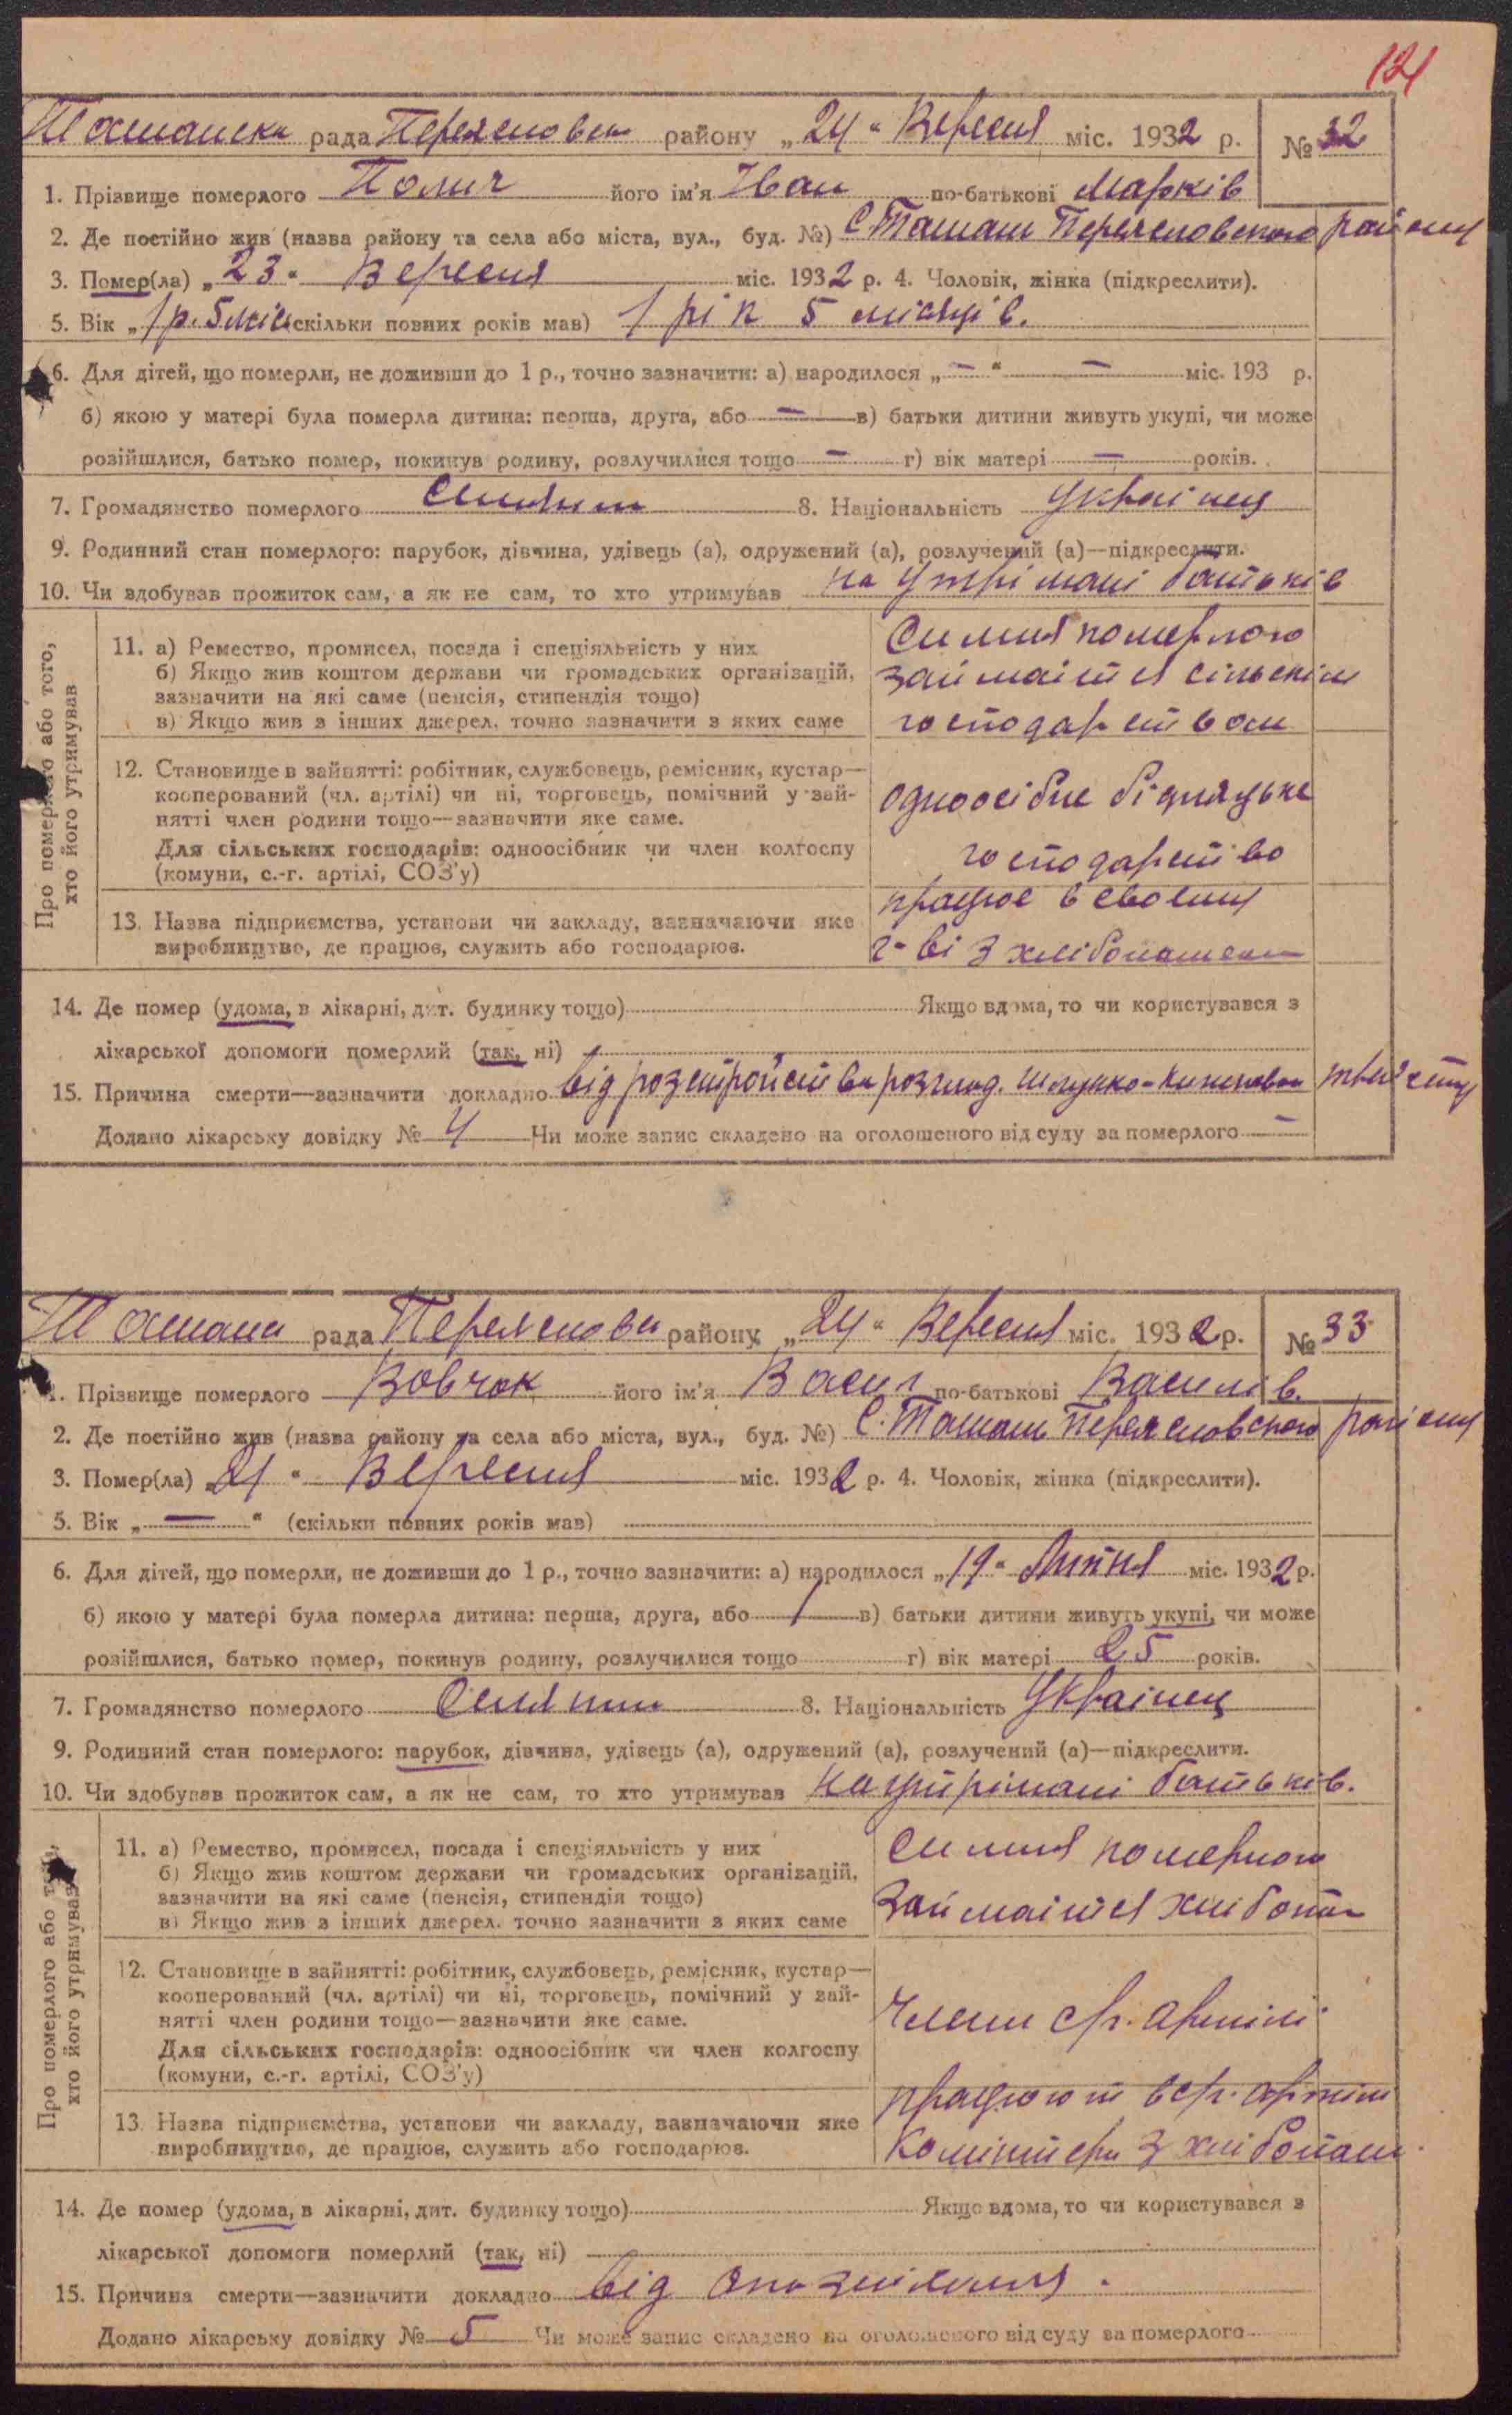 121
Ташанська рада Переяславськ району „24“ Вересня міс. 1932 р. № 32
1. Прізвище померлого Полич його ім'я Іван по-батькові Марків
2. Де постійно жив (назва району та села або міста, вул., буд. №) С Ташань Переяславського району
3. Помер(ла) „23“ Вересня міс. 1932 р. 4. Чоловік, жінка (підкреслити).
5. Вік „1 р. 5 міс (скільки повних років мав) 1 рік 5 місяців.
6. Для дітей, що померли, не доживши до 1 р., точно зазначити: а) народилося „—“ — міс. 193 р.
б) якою у матері була померла дитина: перша, друга, або — в) батьки дитини живуть укупі, чи може
розійшлися, батько помер, покинув родину, розлучилися тощо — г) вік матері — років.
7. Громадянство померлого 8. Національність Українец
9. Родинний стан померлого: парубок, дівчина, удівець (а), одружений (а), розлучений (а)—підкреслити.
10. Чи здобував прожиток сам, а як не сам, то хто утримував на утрімані батьків
Про померлого або того, хто його утримував
11. а) Ремество, промисел, посада і спеціяльність у них
б) Якщо жив коштом держави чи громадських організацій,
зазначити на які саме (пенсія, стипендія тощо)
в) Якщо жив з інших джерел, точно зазначити з яких саме
Симия померлого
займаітся сільскім
господарством
12. Становище в зайнятті: робітник, службовець, ремісник, кустар—
кооперований (чл. артілі) чи ні, торговець, помічний у зай-
нятті член родини тощо—зазначити яке саме.
Для сільських господарів: одноосібник чи член колгоспу
(комуни, с.-г. артілі, СОЗ'у)
одноосібне бідняцьке
господарство
13. Назва підприємства, установи чи закладу, зазначаючи яке
виробництво, де працює, служить або господарює.
працює в своєму
г-ві з хлібопашеси
14. Де помер (удома, в лікарні, дит. будинку тощо) Якщо вдома, то чи користувався з
лікарської допомоги померлий (так, ні)
15. Причина смерти—зазначити докладно від розстройства шлунко-кишкового тракту
Додано лікарську довідку № 4 Чи може запис складено на оголошеного від суду за померлого —
Ташанс рада Переяславсь району „24“ Вересня міс. 1932 р. № 33
1. Прізвище померлого Вовчок його ім'я Васил по-батькові Василів.
2. Де постійно жив (назва району та села або міста, вул., буд. №) С. Ташань Переяславського району
3. Помер(ла) „21“ Вересня міс. 1932 р. 4. Чоловік, жінка (підкреслити).
5. Вік „—“ (скільки повних років мав)
6. Для дітей, що померли, не доживши до 1 р., точно зазначити: а) народилося „19“ Липня міс. 1932 р.
б) якою у матері була померла дитина: перша, друга, або 1 в) батьки дитини живуть укупі, чи може
розійшлися, батько помер, покинув родину, розлучилися тощо г) вік матері 25 років.
7. Громадянство померлого 8. Національність Українец
9. Родинний стан померлого: парубок, дівчина, удівець (а), одружений (а), розлучений (а)—підкреслити.
10. Чи здобував прожиток сам, а як не сам, то хто утримував на утрімані батьків.
Про померлого або того, хто його утримував
11. а) Ремество, промисел, посада і спеціяльність у них
б) Якщо жив коштом держави чи громадських організацій,
зазначити на які саме (пенсія, стипендія тощо)
в) Якщо жив з інших джерел, точно зазначити з яких саме
Симия померлого
займаітся хлібопа
12. Становище в зайнятті: робітник, службовець, ремісник, кустар—
кооперований (чл. артілі) чи ні, торговець, помічний у зай-
нятті член родини тощо—зазначити яке саме.
Для сільських господарів: одноосібник чи член колгоспу
(комуни, с.-г. артілі, СОЗ'у)
Члени с/г. артілі
13. Назва підприємства, установи чи закладу, зазначаючи яке
виробництво, де працює, служить або господарює.
працюют в с/г. артілі
Комінтерн з хлібопаш.
14. Де помер (удома, в лікарні, дит. будинку тощо) Якщо вдома, то чи користувався з
лікарської допомоги померлий (так, ні)
15. Причина смерти—зазначити докладно від
Додано лікарську довідку № 5 Чи може запис складено на оголошеного від суду за померлого